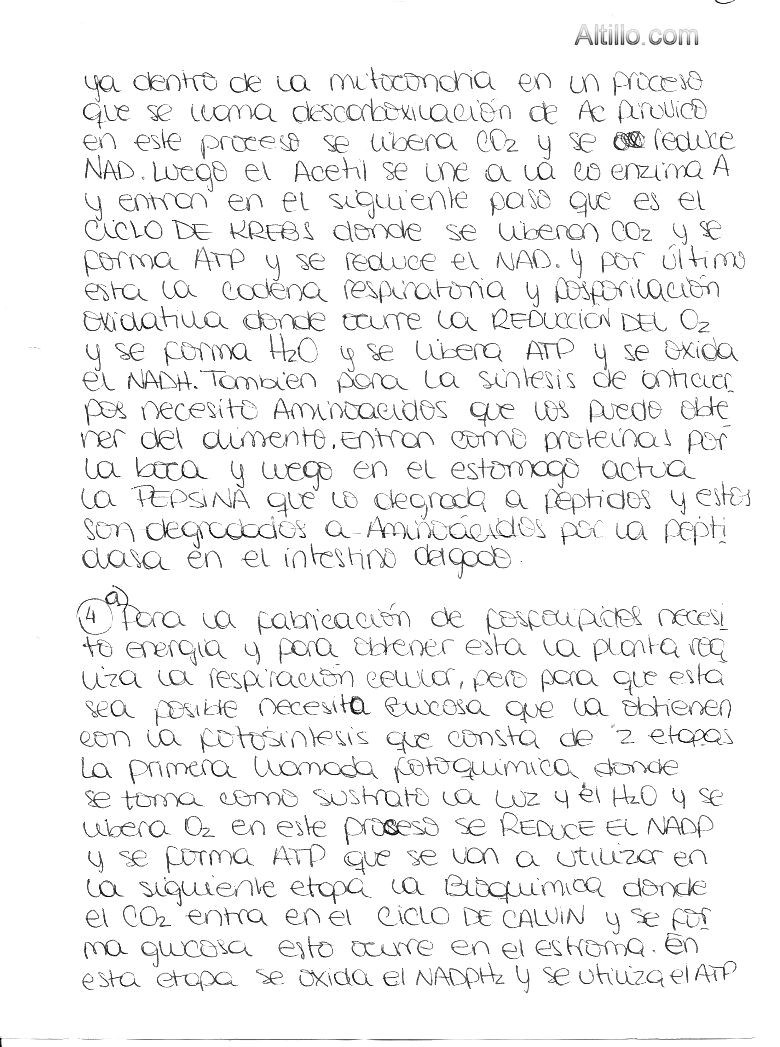 Altillo.com
ya dentro de la mitocondria en un proceso
que se llama descarboxilación de Ac Piruvico
en este proceso se libera CO2 y se reduce
NAD. Luego el Acetil se une a la co enzima A
y entran en el siguiente paso que es el
CICLO DE KREBS donde se liberan CO2 y se
forma ATP y se reduce el NAD. Y por último
esta la cadena respiratoria y fosforilación
oxidativa donde ocurre la REDUCCION DEL O2
y se forma H2O y se libera ATP y se oxida
el NADH. Tambien para la sintesis de anticuer
pos necesito Aminoacidos que los puedo obte
ner del alimento. Entran como proteínas por
la boca y luego en el estomago actua
la PEPSINA que lo degrada a péptidos y estos
son degradados a Aminoácidos por la pepti
dasa en el intestino delgado.
4 a) Para la fabricación de fosfolipidos necesi
to energia y para obtener esta la planta rea
liza la respiración celular, pero para que esta
sea posible necesita Glucosa que la obtienen
con la fotosintesis que consta de 2 etapas
La primera llamada fotoquimica donde
se toma como sustrato la luz y el H2O y se
libera O2 en este proceso se REDUCE EL NADP
y se forma ATP que se van a utilizar en
la siguiente etapa la Bioquimica donde
el CO2 entra en el CICLO DE CALVIN y se for
ma glucosa esto ocurre en el estroma. En
esta etapa se oxida el NADPH2 y se utiliza el ATP